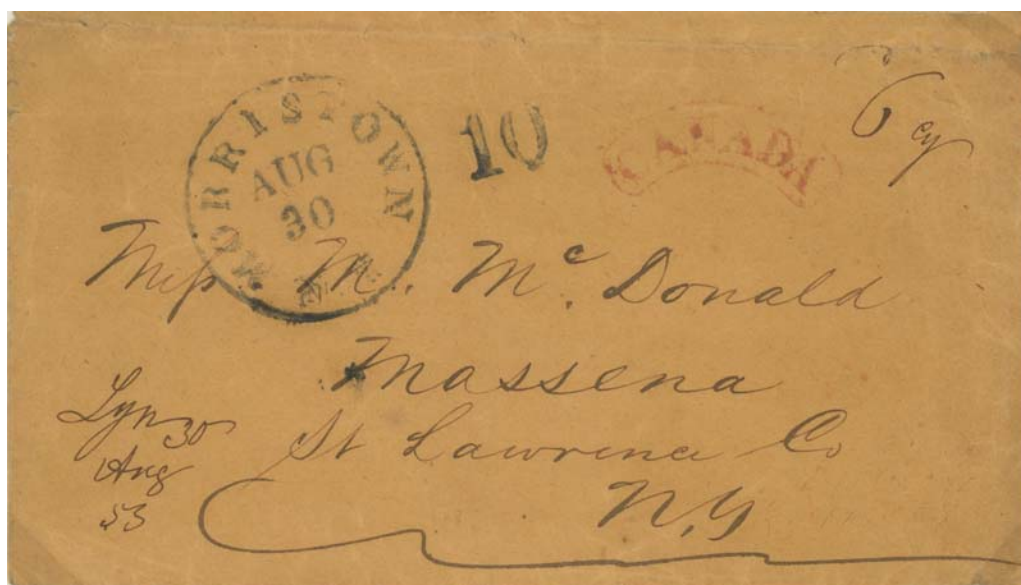 MORRISTOWN
AUG
30
N.Y.
10
CANADA
6 cy
Miss. M. Mc. Donald
Massena
St Lawrence Co
N,Y
Lyn 30
Aug
53